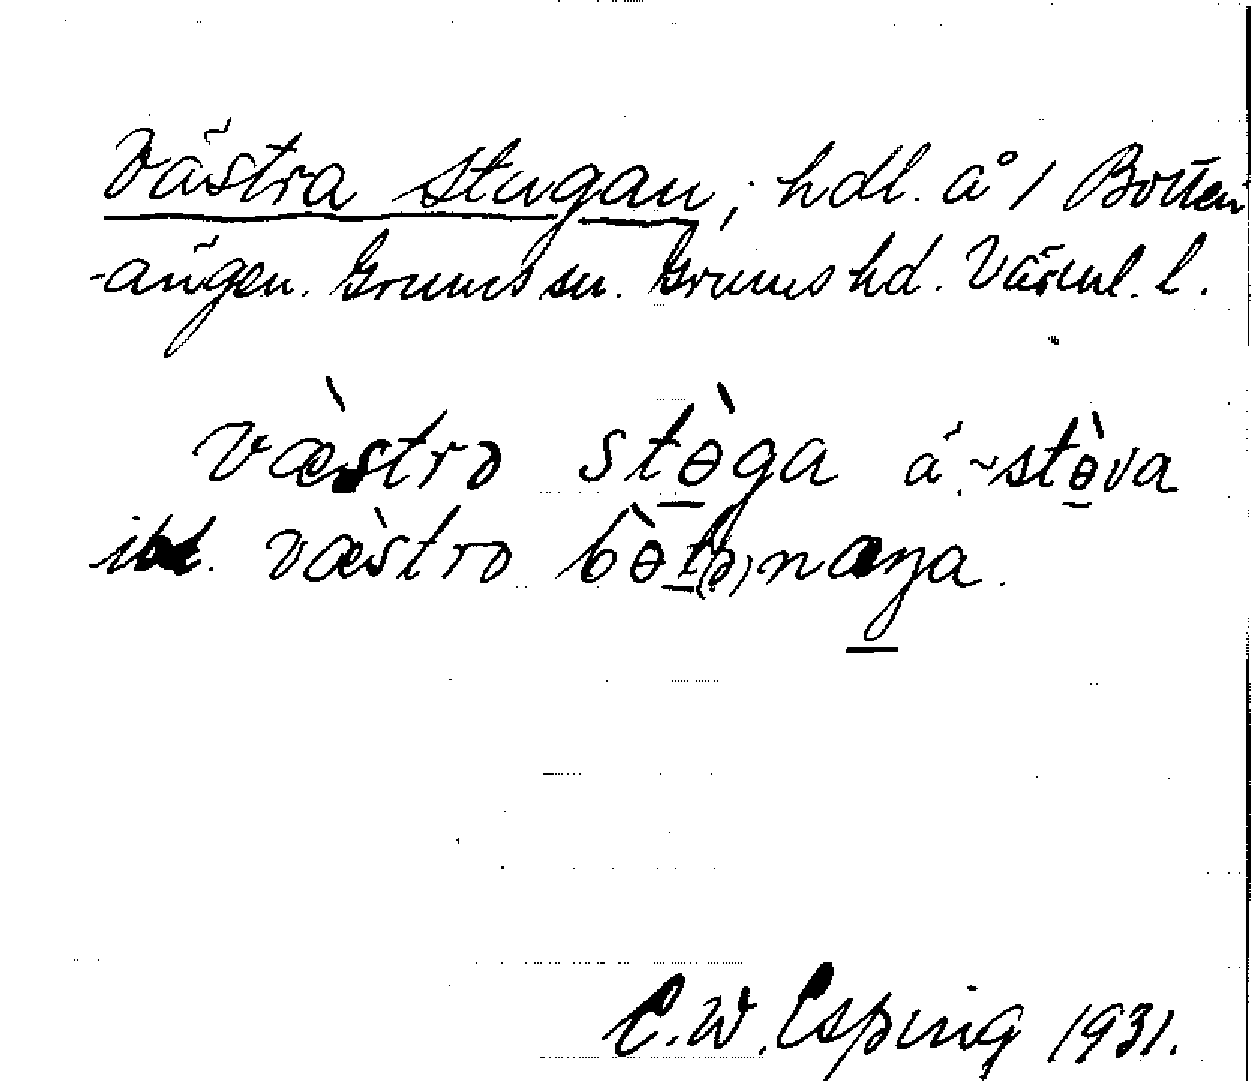 Västra stugan; hdl. å 1 Botten
-ängen. Grums sn. Grums hd. Värml. l.
væ̀stro stɵ̀ga á ~stɵ̀va
væ̀stro bɵ̀t(ə)næŋa.
C. W. Esping 1931.